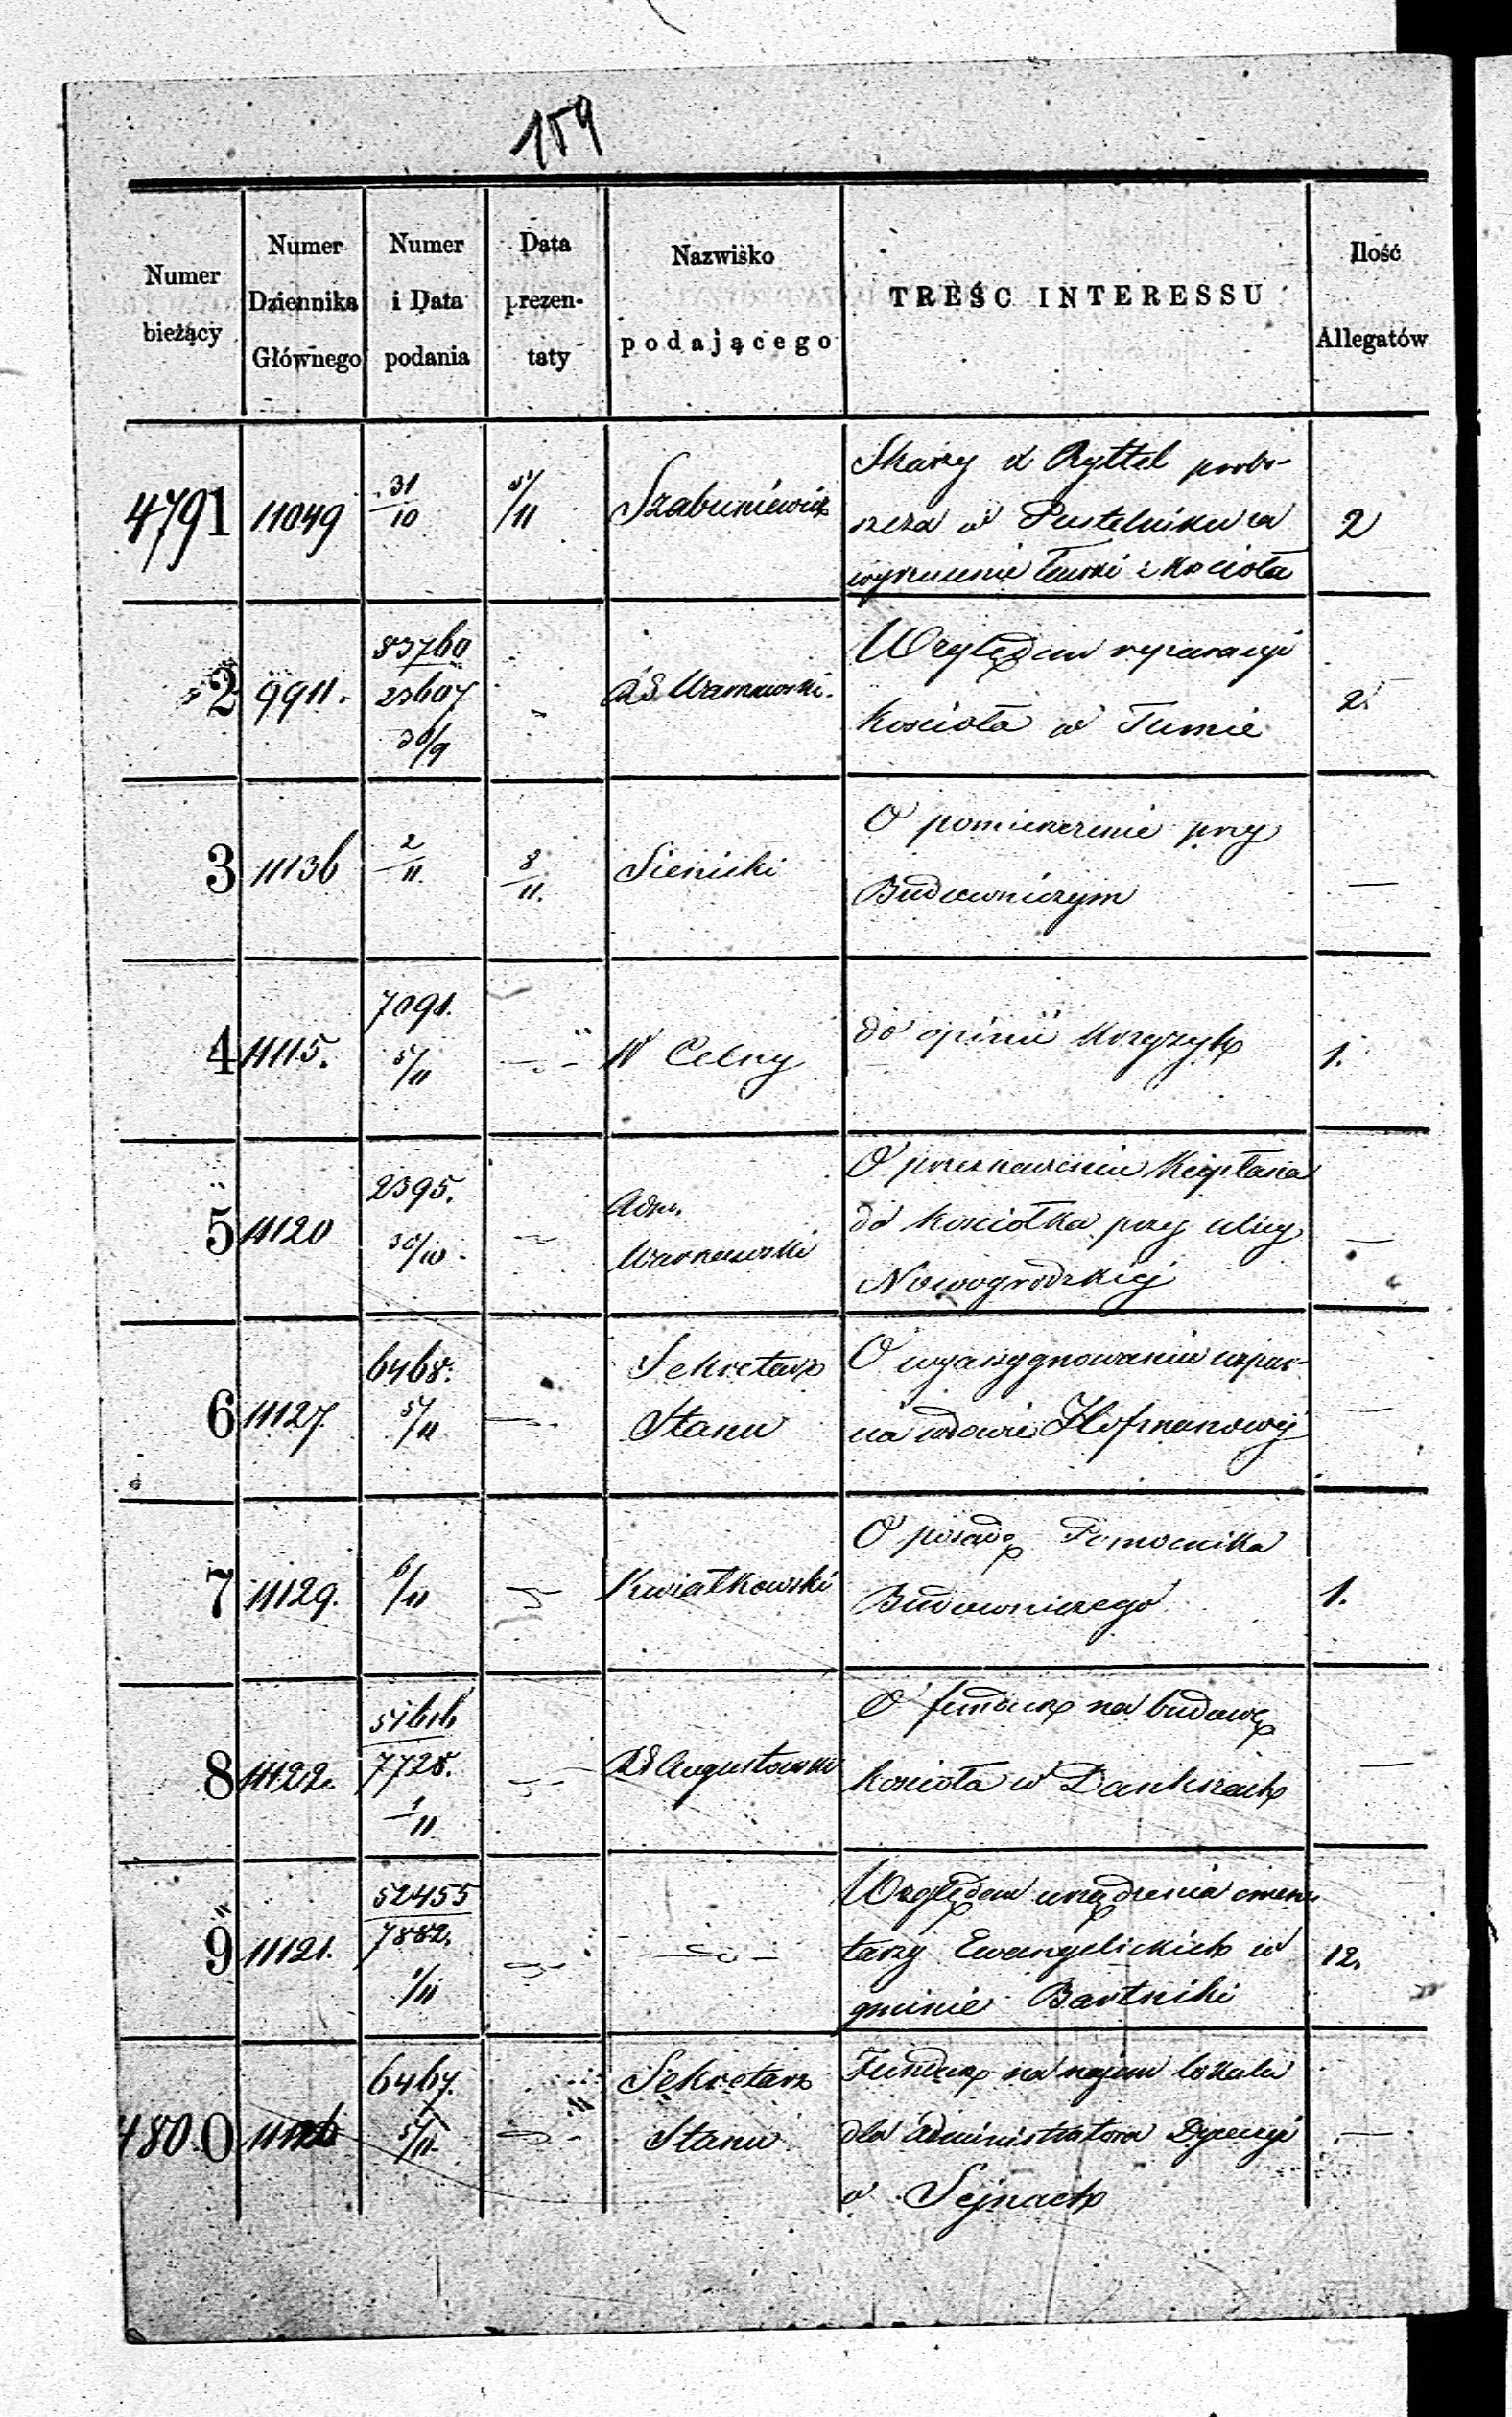 159
Numer bieżący
Numer Dziennika Głównego
Numer i Data podania
Data prezentaty
Nazwisko podającego
TREŚC INTERESSU
Ilość Allegatów
4791 11049 31/10 5/11 Szabuniewicz 2
Skarży X Ryttel probo-
szcza w Pustelniku za
wyrzucenie ławki z kościoła
2 9911. 83760 23607 30/9 RG Warszawski. 2.
Względem reparacyi
kościoła w Tumie
3 11136 2/11 8/11. Sienicki —
O pomieszczenie przy
Budowniczym
4 11115. 7091. 5/11 — N Celny 1.
do opinii
5 11120 2395. 30/10. — Adm. Warszawski —
O przeznaczenie Kapłana
do kościołka przy ulicy
Nowogrodzkiej
6 11127. 6468. 5/11 — Sekretarz Stanu —
O wyasygnowanie wspar-
cia wdowie Hofmanowej
7 11129. 6/11 — Kwiatkowski 1.
O posadę Pomocnika
Budowniczego
8 11122. 51616 7728. 1/11 — RG Augustowski —
O fundusz na budowę
kościoła w
9 11121. 52455 7882. 1/11 — — 12.
Względem urządzenia cmen-
tarzy Ewangelickich w
gminie Bartniki
4800 11126 6467. 5/11. — Sekretarz Stanu —
Fundusz na najem lokalu
dla Administratora Dyecezyi
w Sejnach